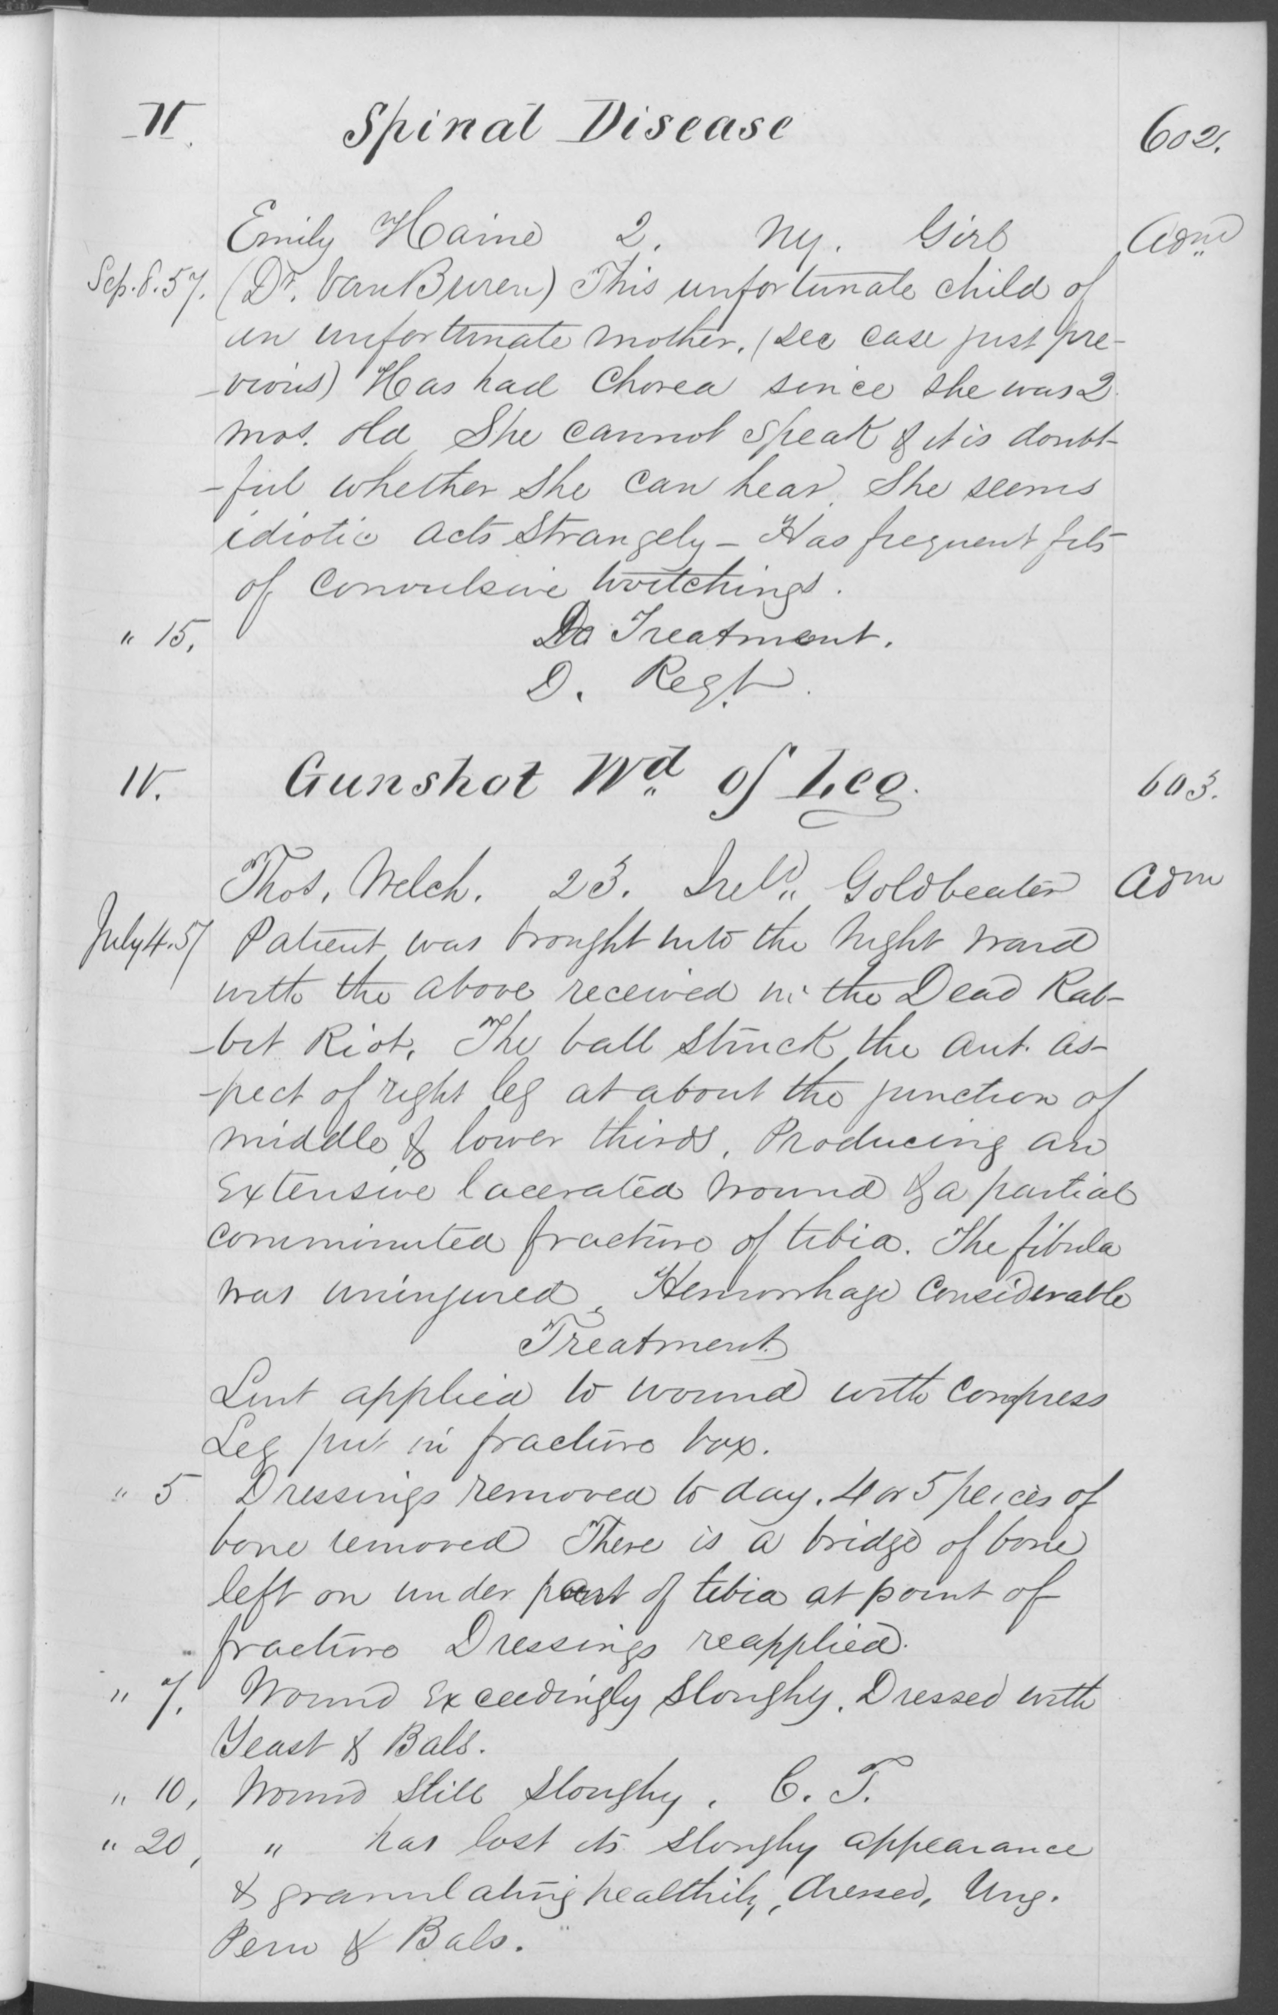 II. Spinal Disease 602.
Emily Haine 2. Ny. Girl Adm
Sep. 8. 57. (Dr. Van Buren) This unfortunate child of
an unfortunate mother. (see case just pre-
-vious) Has had Chorea since she was 2
mos. old She cannot speak & it is doubt-
-ful whether she can hear. She seems
idiotic acts strangely - Has frequent fits
of convulsive twitchings.
" 15, Treatment.
D. Reqt.
IV. Gunshot Wd. of Leg. 603.
Thos. Welch. 23. Ireld. Goldbeater Adm
July 4. 57 Patient was brought into the Night Ward
with the above received in the Dead Rab-
-bit Riot. The ball struck the ant. as-
-pect of right leg at about the junction of
middle & lower thirds. Producing an
Extensive lacerated wound & a partial
comminuted fracture of tibia. The fibula
was uninjured. Hemorrhage Considerable
Treatment
Lint applied to wound with compress
Leg put in fracture box.
" 5 Dressings removed to day. 4 or 5 peices of
bone removed There is a bridge of bone
left on under part of tibia at point of
fracture Dressings reapplied.
" 7. Wound Exceedingly sloughy. Dressed with
Yeast & Bals.
" 10, Wound still sloughy. C. T.
" 20, " has lost its sloughy appearance
& granulating healthily, dressed, Ung.
Peru & Bals.